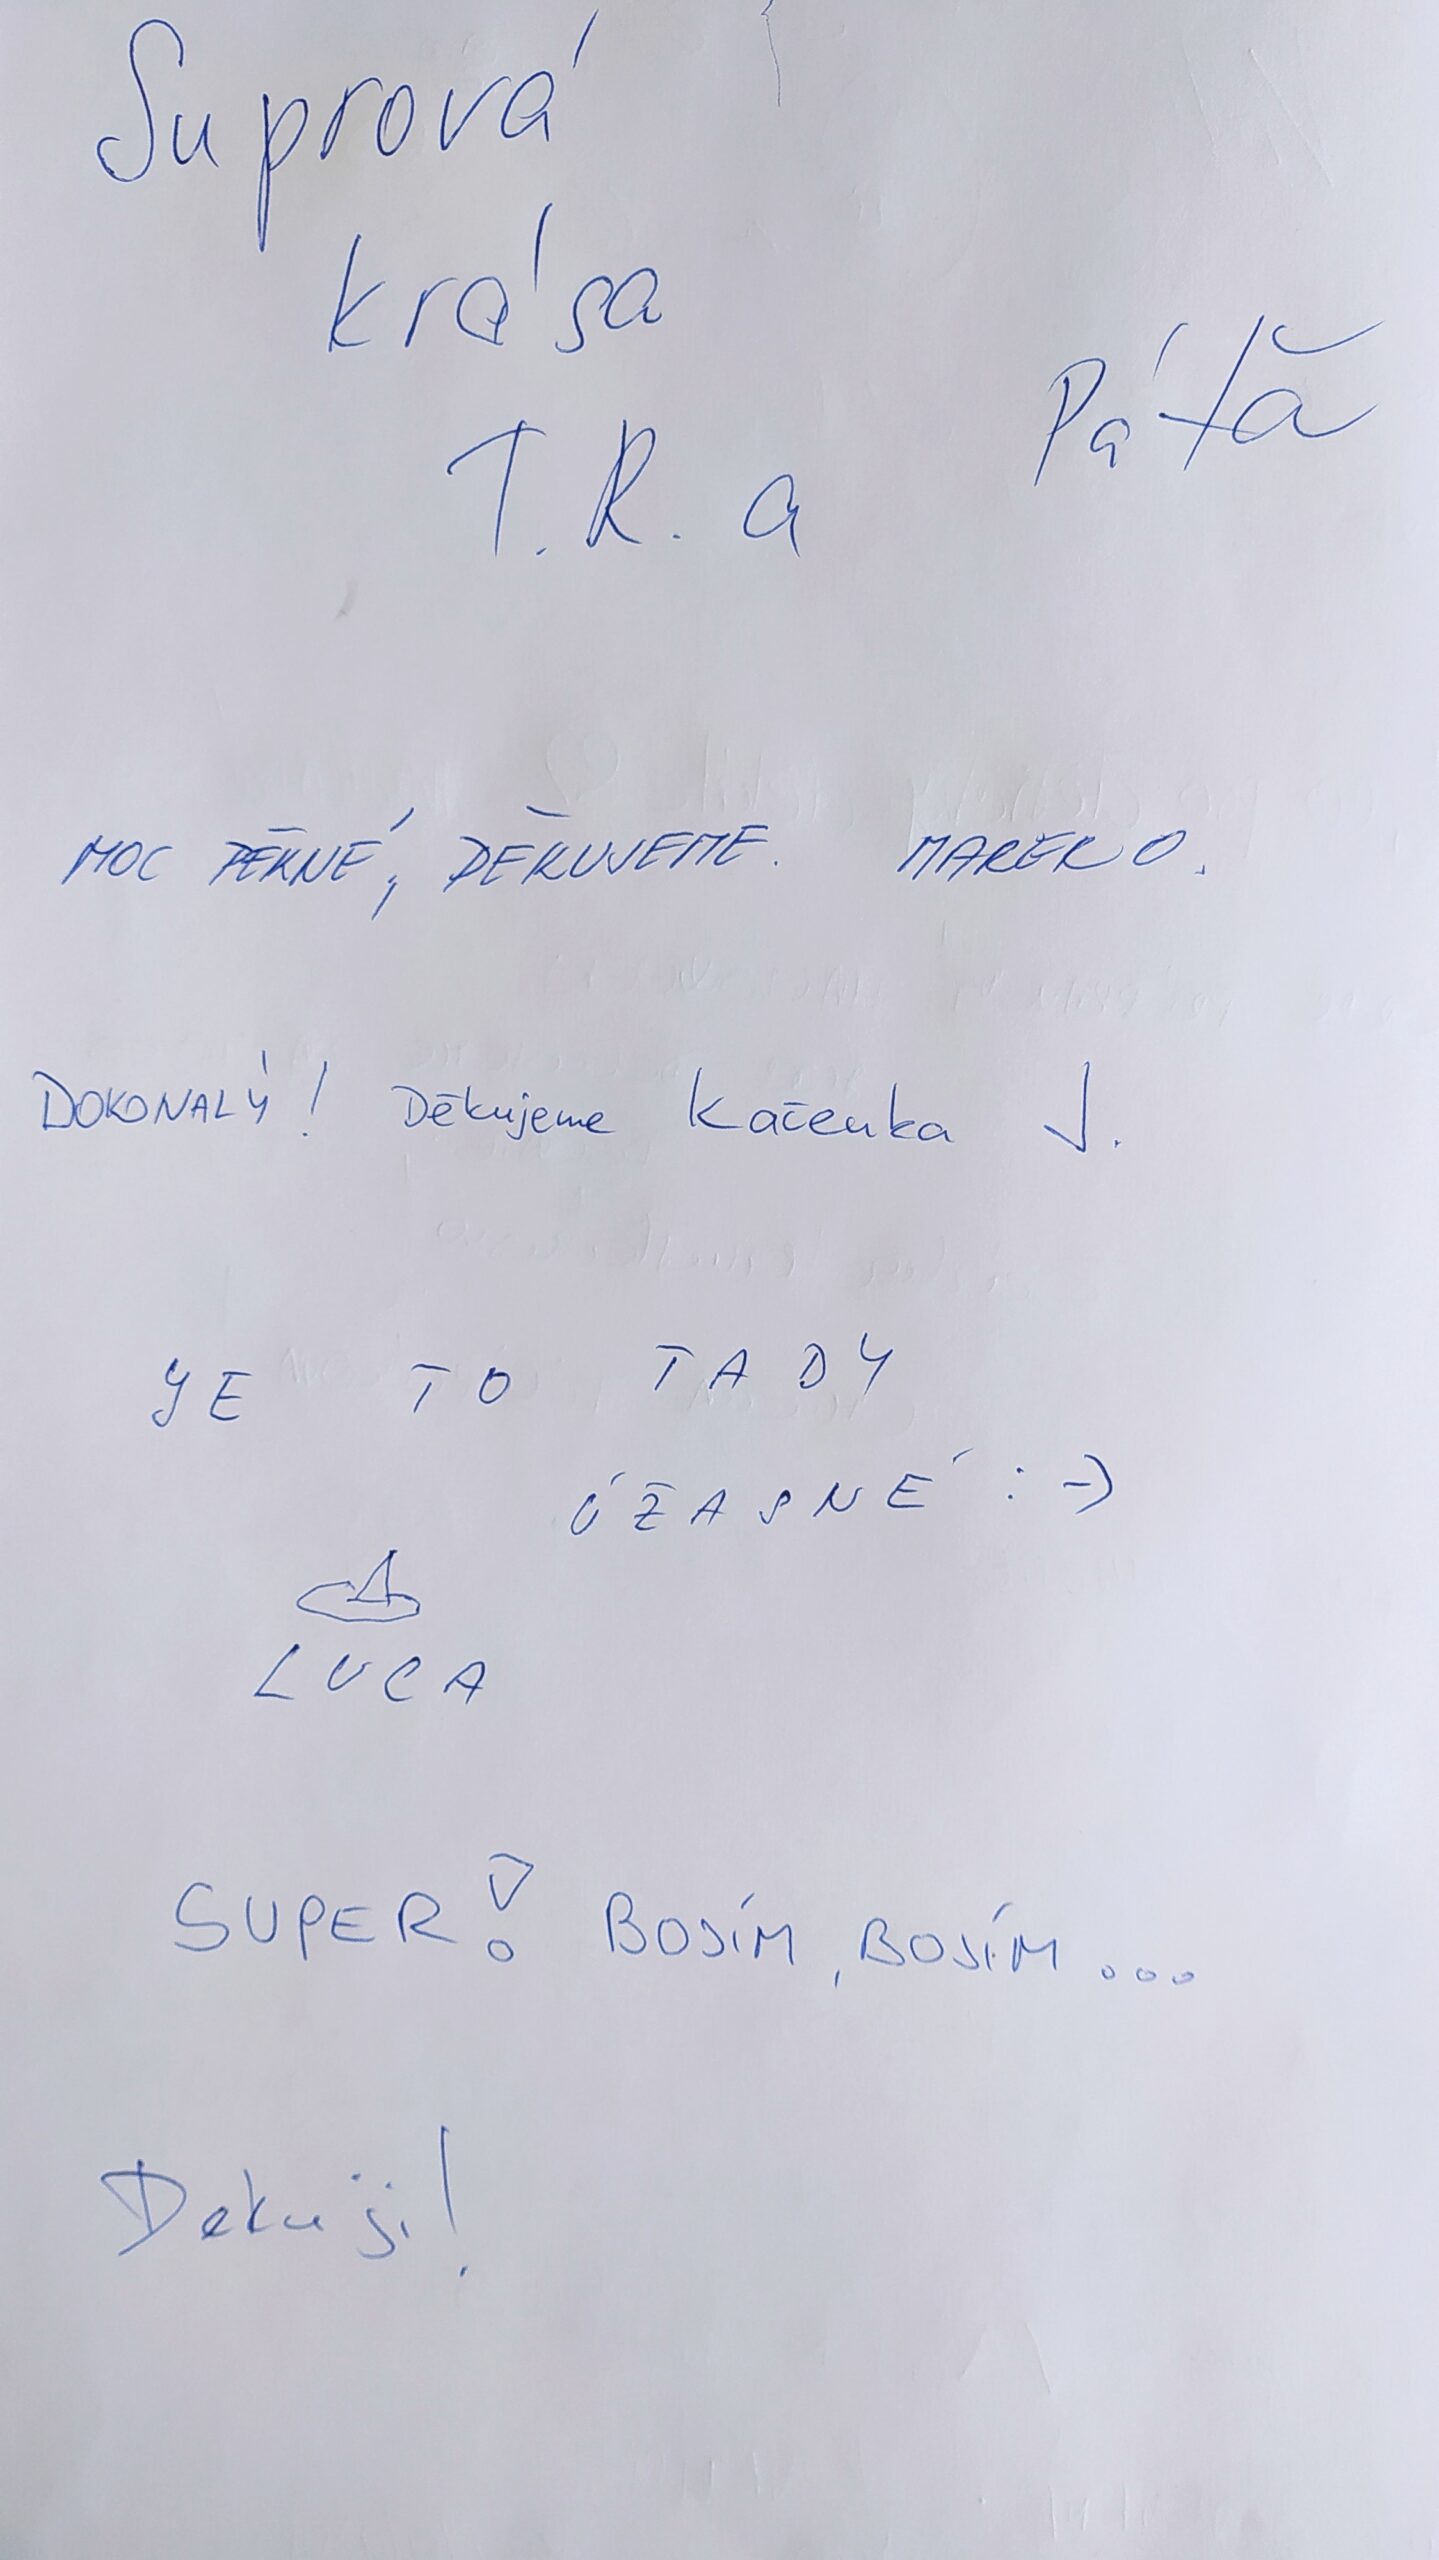 Suprová
krása
T. R. a Páťa
MOC PĚKNÉ, DĚKUJEME. MAREK O.
DOKONALÝ! Děkujeme Kačenka J.
JE TO TADY
ÚŽASNÉ :-)
LUCA
SUPER! BOSÍM, BOSÍM...
Dekuji!